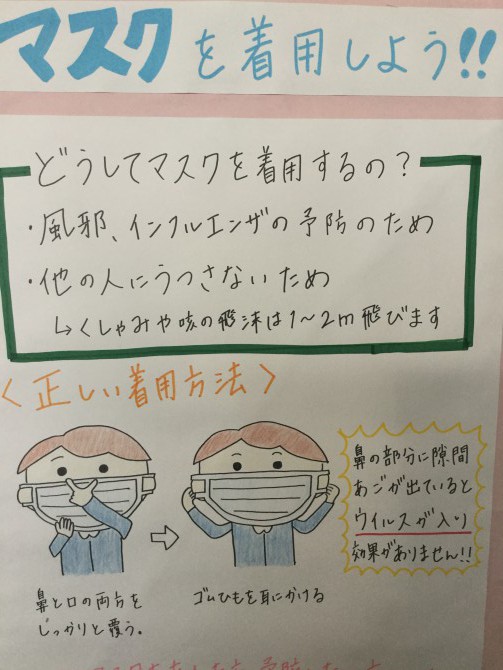 マスクを着用しよう!!
どうしてマスクを着用するの?
・風邪、インフルエンザの予防のため
・他の人にうつさないため
↳くしゃみや咳の飛沫は1〜2m飛びます
〈正しい着用方法〉
鼻の部分に隙間
あごが出ていると
ウイルスが入り
効果がありません!!
鼻と口の両方を
しっかりと覆う。
ゴムひもを耳にかける